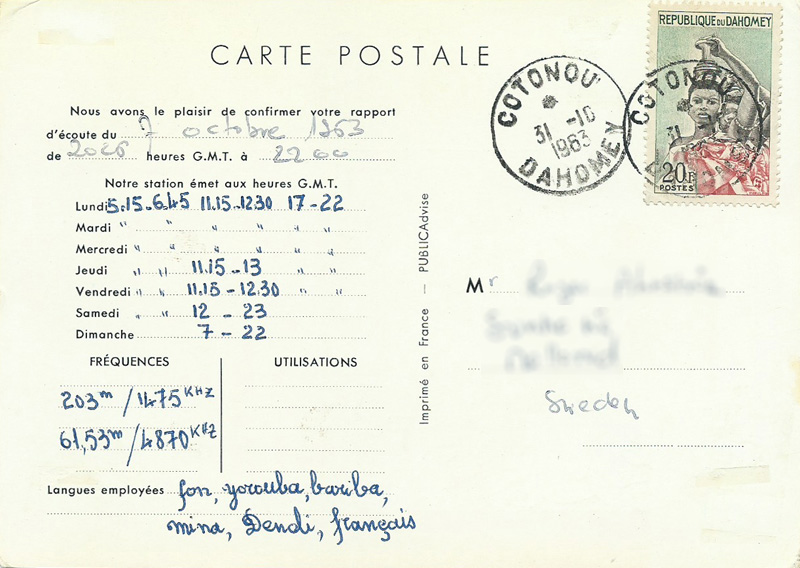 CARTE POSTALE
Nous avons le plaisir de confirmer votre rapport
d'écoute du 7 octobre 1963
de 2026 heures G.M.T. à 2200
Notre station émet aux heures G.M.T.
Lundi 5.15-6.45 11.15-12.30 17-22
Mardi " " " " "
Mercredi " " " " "
Jeudi " " 11.15-13 " "
Vendredi " " 11.15-12.30 " "
Samedi " " 12 - 23
Dimanche 7 - 22
FRÉQUENCES
203m/1475 KHZ
61,53m/4870 KHZ
UTILISATIONS
Langues employées fon, yorouba, bariba,
mina, Dendi, français
Imprimé en France — PUBLICAdvise
COTONOU
31 -10
1963
DAHOMEY
REPUBLIQUE DU DAHOMEY
20F
POSTES
COTONOU
31
Mr
Sweden